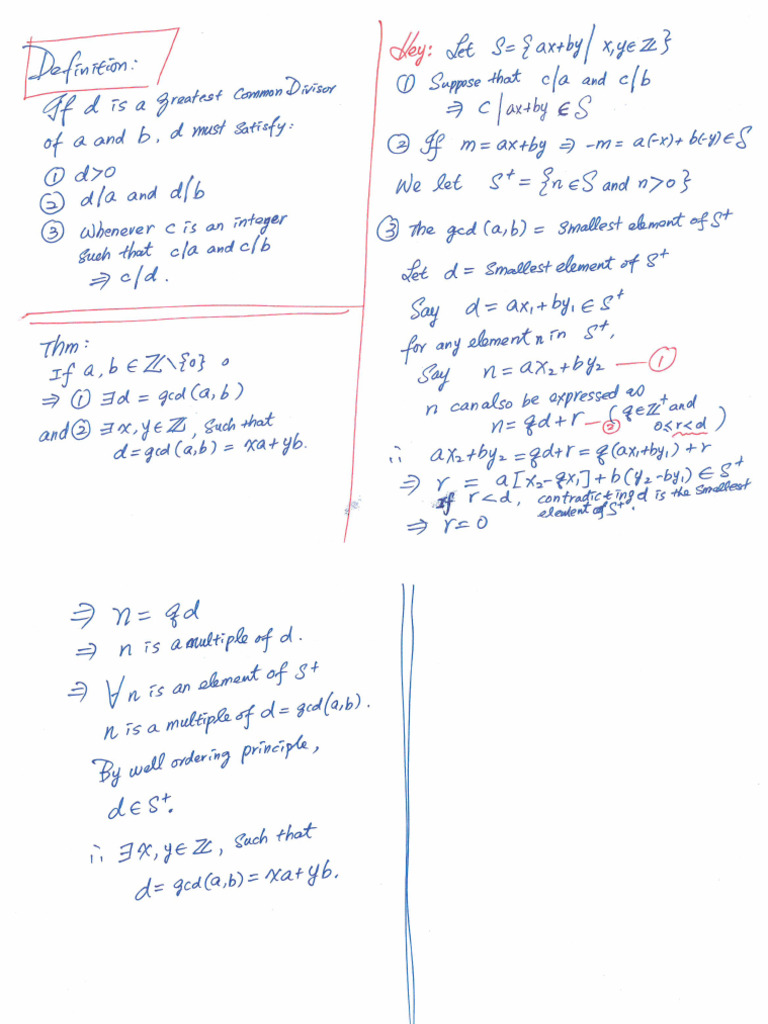 Definition:
If d is a Greatest Common Divisor
of a and b, d must satisfy:
① d>0
② d/a and d/b
③ Whenever c is an integer
such that c/a and c/b
⇒ c/d.
Thm:
If a, b ∈ ℤ\{0}
⇒ ① ∃d = gcd(a, b)
and ② ∃x, y∈ℤ, such that
d=gcd(a,b) = xa+yb.
Key: Let S={ax+by/ x,y∈ℤ}
① Suppose that c/a and c/b
⇒ c/ax+by ∈ S
② If m=ax+by ⇒ -m= a(-x)+b(-y)∈S
We let S⁺={n∈S and n>0}
③ The gcd(a,b) = smallest element of S⁺
Let d = smallest element of S⁺
Say d=ax₁+by₁∈S⁺
for any element n in S⁺,
Say n=ax₂+by₂ —①
n can also be expressed as
n=qd+r —② (q∈ℤ⁺ and 0≤r<d)
∴ ax₂+by₂=qd+r=q(ax₁+by₁)+r
⇒ r = a[x₂-qx₁]+b(y₂-by₁)∈S⁺
If r<d, contradicting d is the smallest
element of S⁺.
⇒ r=0
⇒ n= qd
⇒ n is a multiple of d.
⇒ ∀n is an element of S⁺
n is a multiple of d=gcd(a,b).
By well ordering principle,
d∈S⁺.
∴ ∃x,y∈ℤ, such that
d=gcd(a,b)=xa+yb.